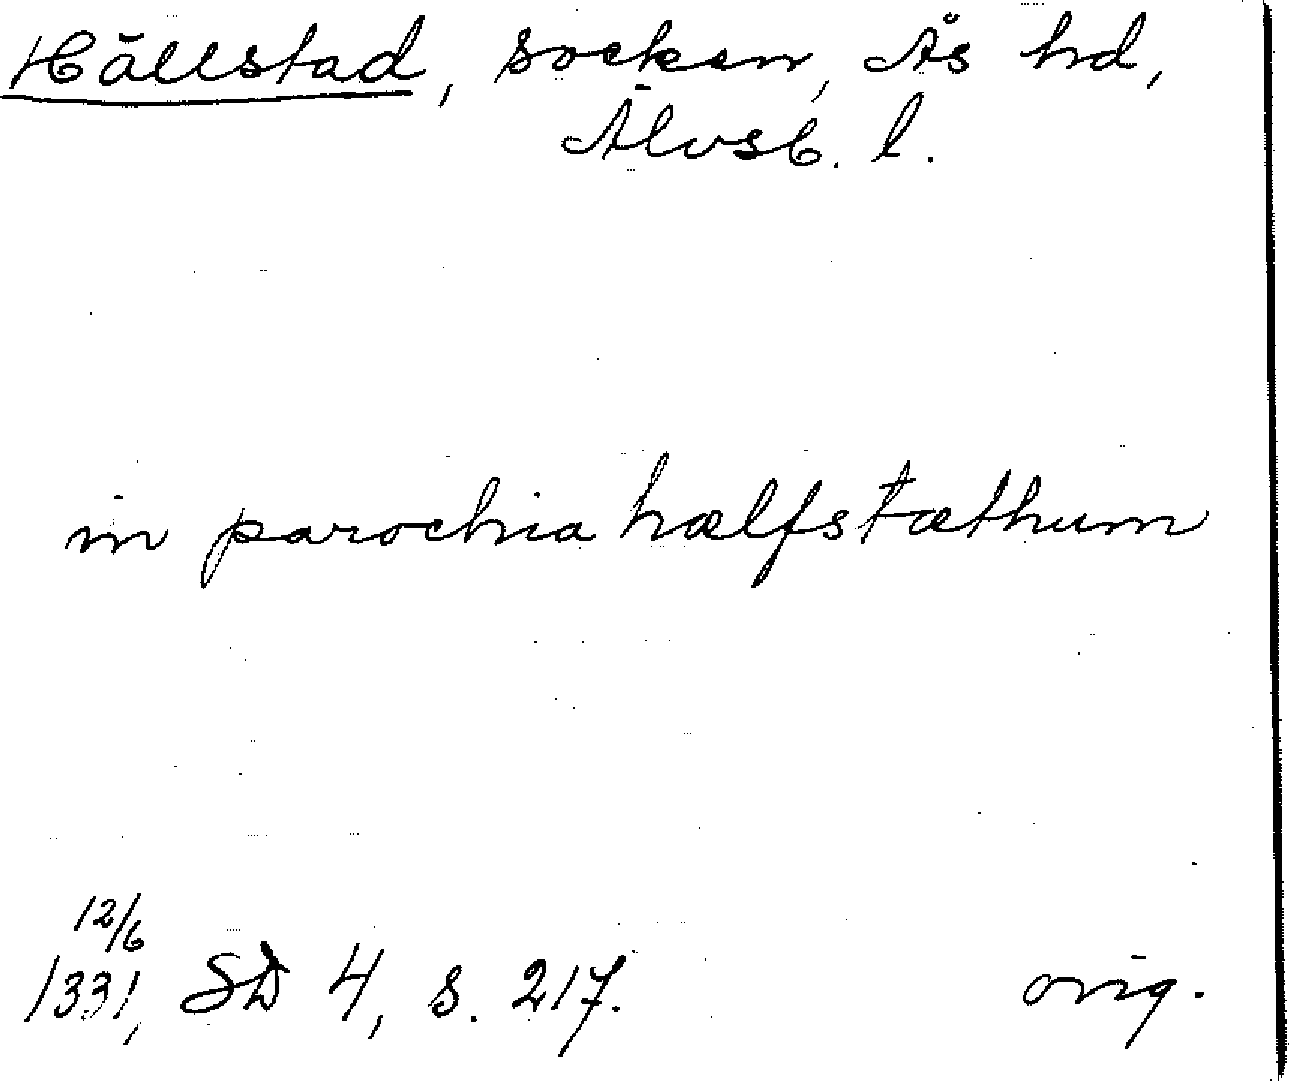 Hällstad, socken, Ås hd,
Älvsb. l.
in parochia hælfstæthum
12/6
1331, SD 4, s. 217. orig.